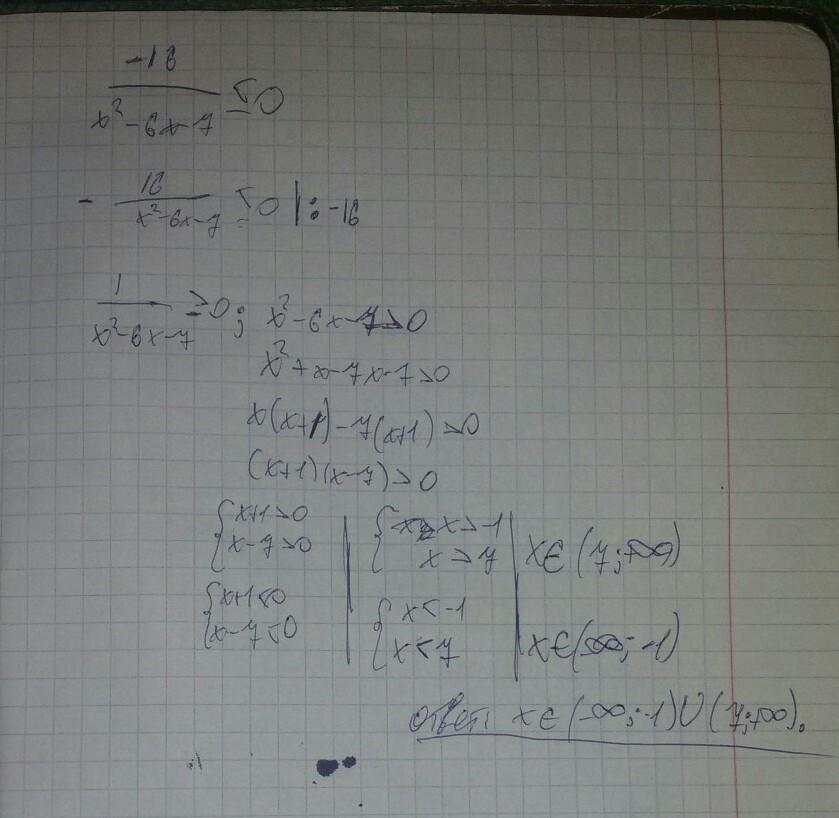 -16
x²-6x-7 ≤0
- 16
x²-6x-7 ≤0 |:-16
1
x²-6x-7 ≥0; x²-6x-7>0
x²+x-7x-7>0
x(x+1)-7(x+1)>0
(x+1)(x-7)>0
{x+1>0 | {x>-1 | x∈(7;+∞)
{x-7>0 | {x>7
{x+1<0 | {x<-1 | x∈(-∞;-1)
{x-7<0 | {x<7
Ответ: x∈(-∞;-1)∪(7;+∞).